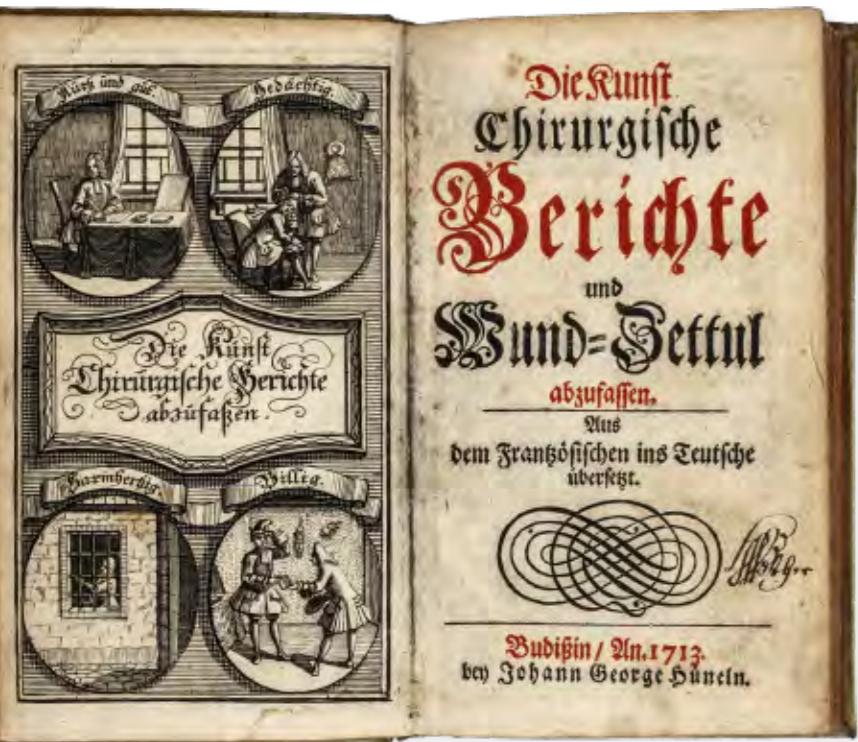 Kurtz und gut.
Bedächtig.
Die Kunst
Chirurgische Berichte
abzufaßen.
Barmhertzig.
Billig.
Die Kunst
Chirurgische
Berichte
und
Wund=Zettul
abzufassen.
Aus
dem Frantzösischen ins Teutsche
übersetzt.
Budißin / An. 1713.
bey Johann George